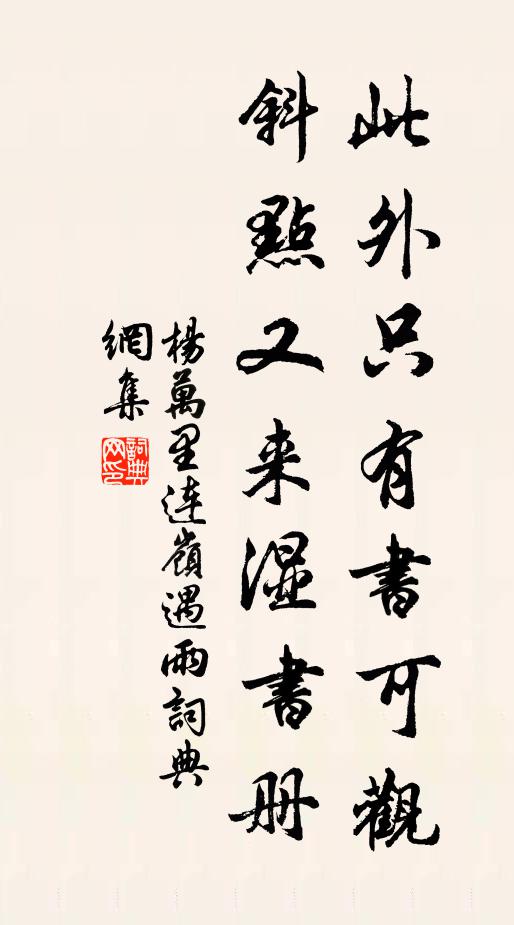 此外只有書可觀
斜點又来湿書册
楊萬里連嶺遇雨詞典
網集
詞典网印